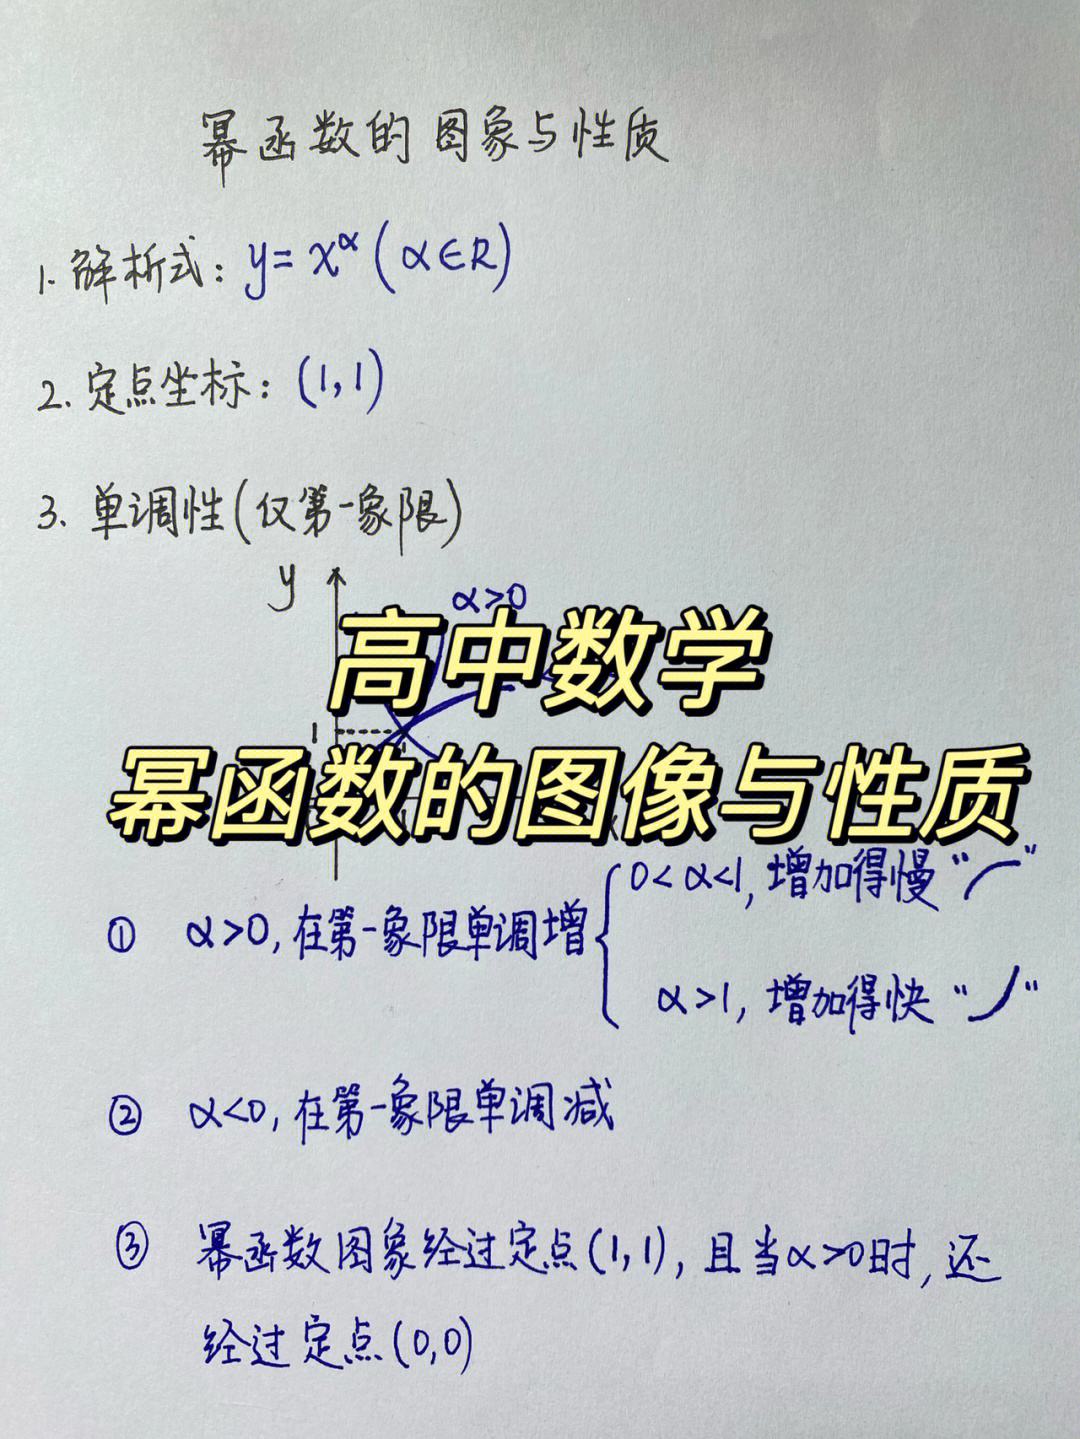 幂函数的图象与性质
1. 解析式：y=x^α (α∈R)
2. 定点坐标：(1,1)
3. 单调性(仅第一象限)
y
α>0
高中数学
1
幂函数的图像与性质
0<α<1, 增加得慢“ ”
① α>0, 在第一象限单调增
α>1, 增加得快“ ”
② α<0, 在第一象限单调减
③ 幂函数图象经过定点(1,1), 且当α>0时, 还
经过定点(0,0)